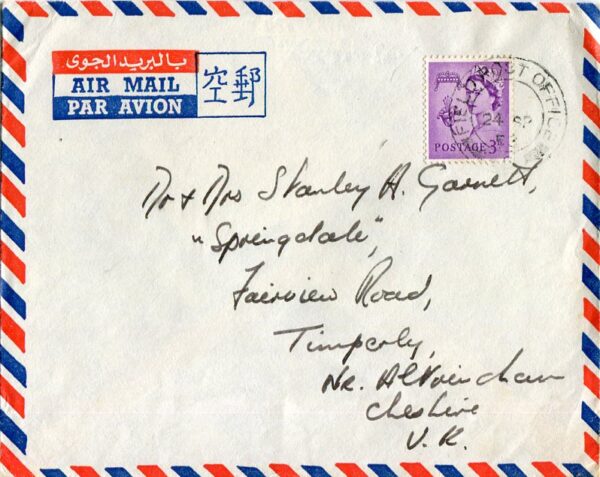 بالبريد الجوى
AIR MAIL
PAR AVION
郵空
POSTAGE 3D
FIELD POST OFFICE
24
Mr & Mrs Stanley H. Garnett,
"Springdale",
Fairview Road,
Timperly,
Nr. Altrincham
Cheshire
U.K.